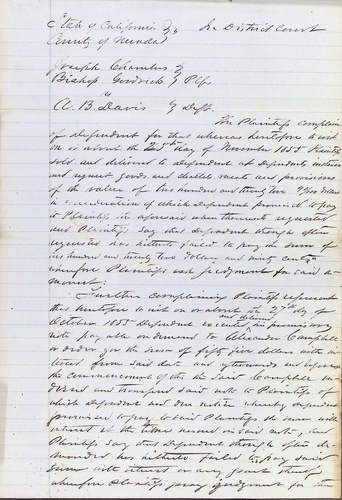 State of California } In District Court
County of Nevada
Joseph Chambers }
Bishop Goodrich } Plffs
vs
A. B. Davis } Deft.
The Plaintiffs complain
of defendant for that whereas heretofore to wit
on or about the 25th day of November 1855 Plaintiffs
sold and delivered to defendant at defendants instance
and request goods and chattels meats and provisions
of the value of one hundred and twenty two 90/100 dollars
in consideration of which defendant promised to pay
to Plaintiffs the aforesaid when thereunto requested
and Plaintiffs say that defendant though often
requested has hitherto failed to pay the sum of
one hundred and twenty two dollars and ninety cents
wherefore Plaintiffs ask judgment for said a-
mount:
Further complaining Plaintiffs represent
that heretofore to wit on or about the 27th day of
October 1855 defendant executed his promissory
note payable on demand to Alexander Campbell
or order for the sum of fifty five dollars with in-
terest from said date and afterwards and before
the commencement of this the said Campbell en-
dorsed and transferred said note to Plaintiffs of
which defendant had due notice whereby defendant
promised to pay to said Plaintiffs the sum with
interest at the time named in said note and
Plaintiffs say that defendant though often de-
manded has hitherto failed to pay said
sum with interest or any part thereof
wherefore Plaintiffs pray judgment for the